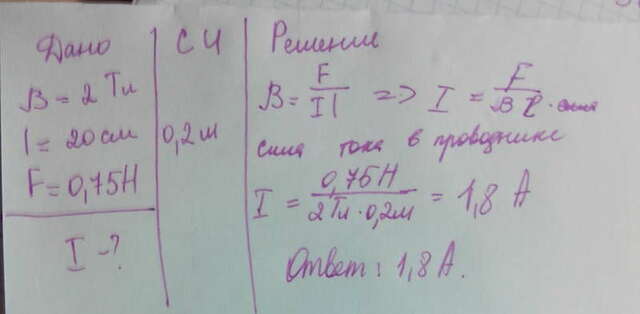 Дано
B = 2 Тл
l = 20 см
F = 0,75 Н
I - ?
СИ
0,2 м
Решение
B = F / I l => I = F / B l -
сила тока в проводнике
I = 0,75 Н / 2 Тл · 0,2 м = 1,8 А
Ответ: 1,8 А.